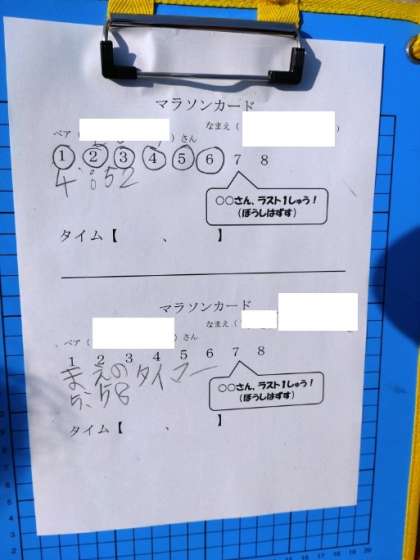 マラソンカード
ペア（　　　）さん　なまえ（　　　）
① ② ③ ④ ⑤ ⑥ 7 8
4:52
○○さん、ラスト1しゅう！
（ぼうしはずす）
タイム【　　、　　】
マラソンカード
ペア（　　　）さん　なまえ（　　　）
1 2 3 4 5 6 7 8
まえのタイマー
5:58
○○さん、ラスト1しゅう！
（ぼうしはずす）
タイム【　　、　　】